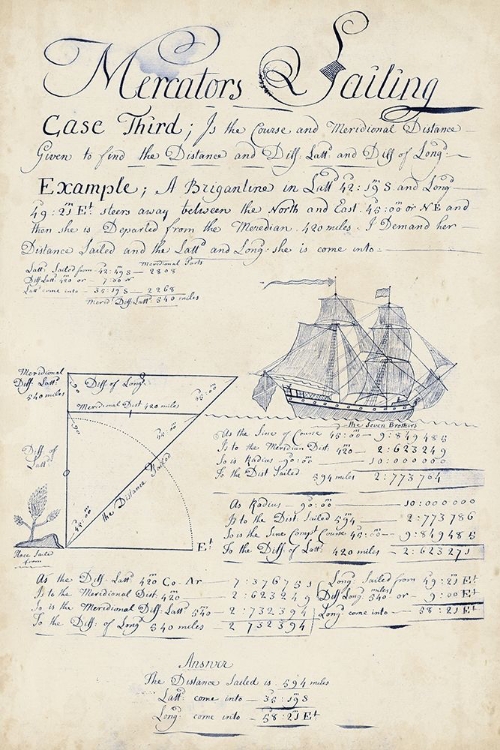 Mercators Sailing
Case Third; Is the Course and Meridional Distance
Given to find the Distance and Diff. Latt.d and Diff of Long.
Example; A Brigantine in Latt 42:19 S and Long
49:21 E.t steers away between the North and East 45:00 or NE and
then she is Departed from the Meredian 420 miles I Demand her
Distance Sailed and the Latt.d and Long. she is come into
Meridional Parts
Latt. Sailed from 42:19 S 2808
Diff Latt 420 or 7:00
Latt come into 35:19 S 2268
Merid Diff Latt 540 miles
Meridional
Diff. Latt.
540 miles
Diff of Long.
Meridional Dist 420 miles
45:00
Diff of Latt.
the Distance Sailed
45:00
E.t
Place Sailed
from
The Seven Brothers
As the Sine of Course 45:00 9:849485
Is to the Meridian Dist. 420 2:623249
So is Radius 90:00 10:000000
To the Dist Sailed 594 miles 2:773764
As Radius 90:00 10:000000
Is to the Dist Sailed 594 2:773786
So is the Sine Comp.t Course 45:00 9:849485
To the Diff of Latt. 420 miles 2:623271
As the Diff. Latt 420 Co. Ar 7:376751
Is to the Meridional Dist. 420 2:623249
So is the Meridional Diff. Latt.d 540 2:732394
To the Diff. of Long.d 540 miles 2 732394
Long. Sailed from 49:21 E.t
Diff Long 540 miles or 9:00 E.t
Long come into 58:21 E.t
Answer
The Distance Sailed is 594 miles
Latt. come into 35:19 S
Long. come into 58:21 E.t